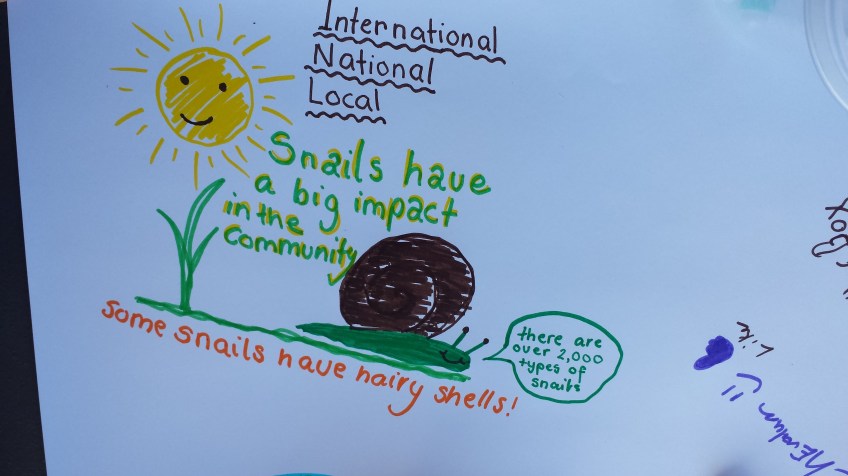 International
National
Local
Snails have
a big impact
in the
Community
there are
over 2,000
types of
snails
Some snails have hairy shells!
Box